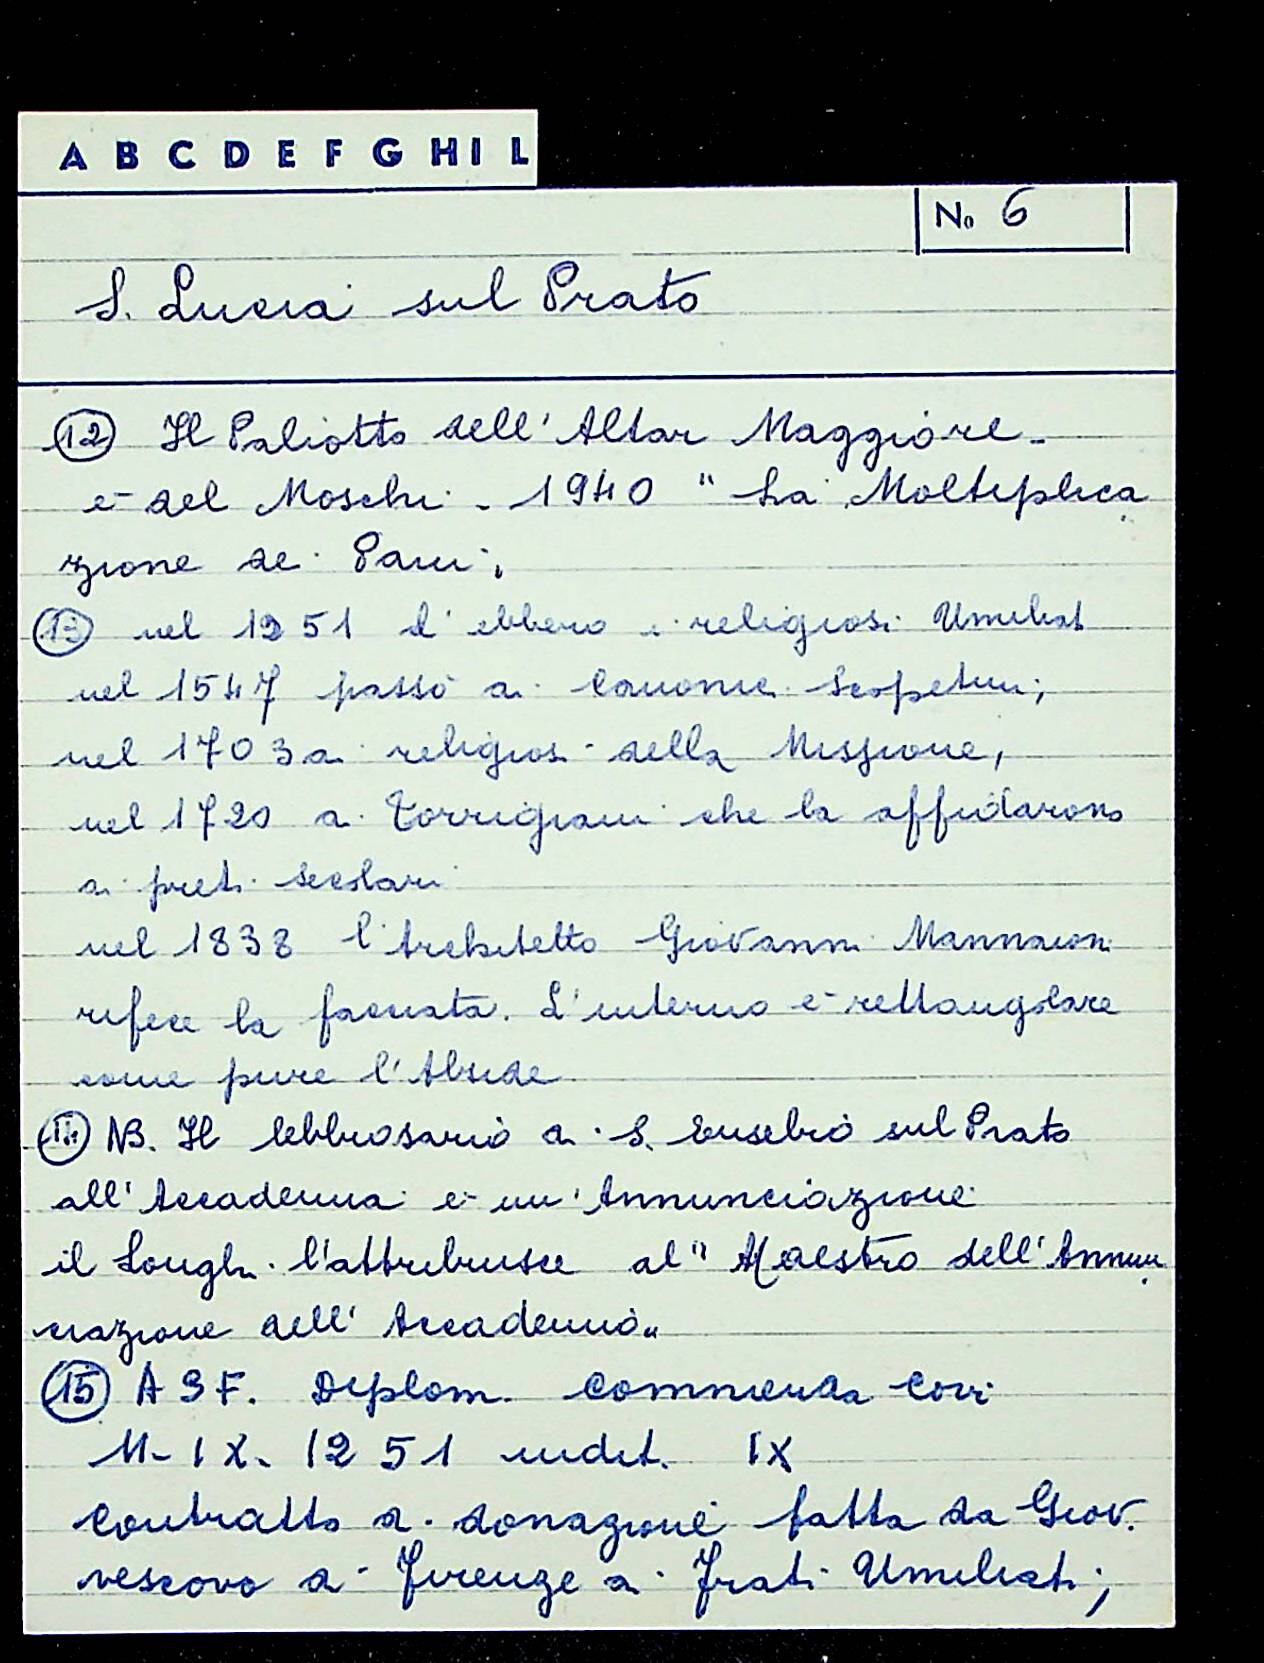 A B C D E F G H I L
No 6
S. Lucia sul Prato
12 Il Paliotto dell'Altar Maggiore -
è del Moschi - 1940 " La Moltiplica
zione dei Pani.
13 nel 1251 l'ebbero i religiosi Umiliati
nel 1547 passò ai Canonici Scopetini;
nel 1703 ai religiosi della Missione,
nel 1720 ai Torrigiani che la affidarono
ai preti secolari
nel 1838 l'Architetto Giovanni Mannaioni
rifece la facciata. L'interno è rettangolare
come pure l'Abside
14 NB. Il lebbrosario di S. Eusebio sul Prato
all'Accademia è un'Annunciazione
il Longhi l'attribuisce al " Maestro dell'Annun
ciazione dell'Accademia"
15 A S F. Diplom. Commenda Covi
11 - IX - 1251 indit. IX
contratto di donazione fatta da Giov.
vescovo di Firenze ai Frati Umiliati;